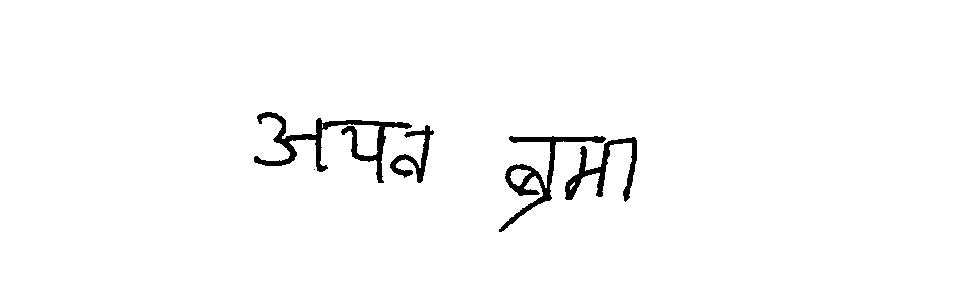 अपन ब्रमा